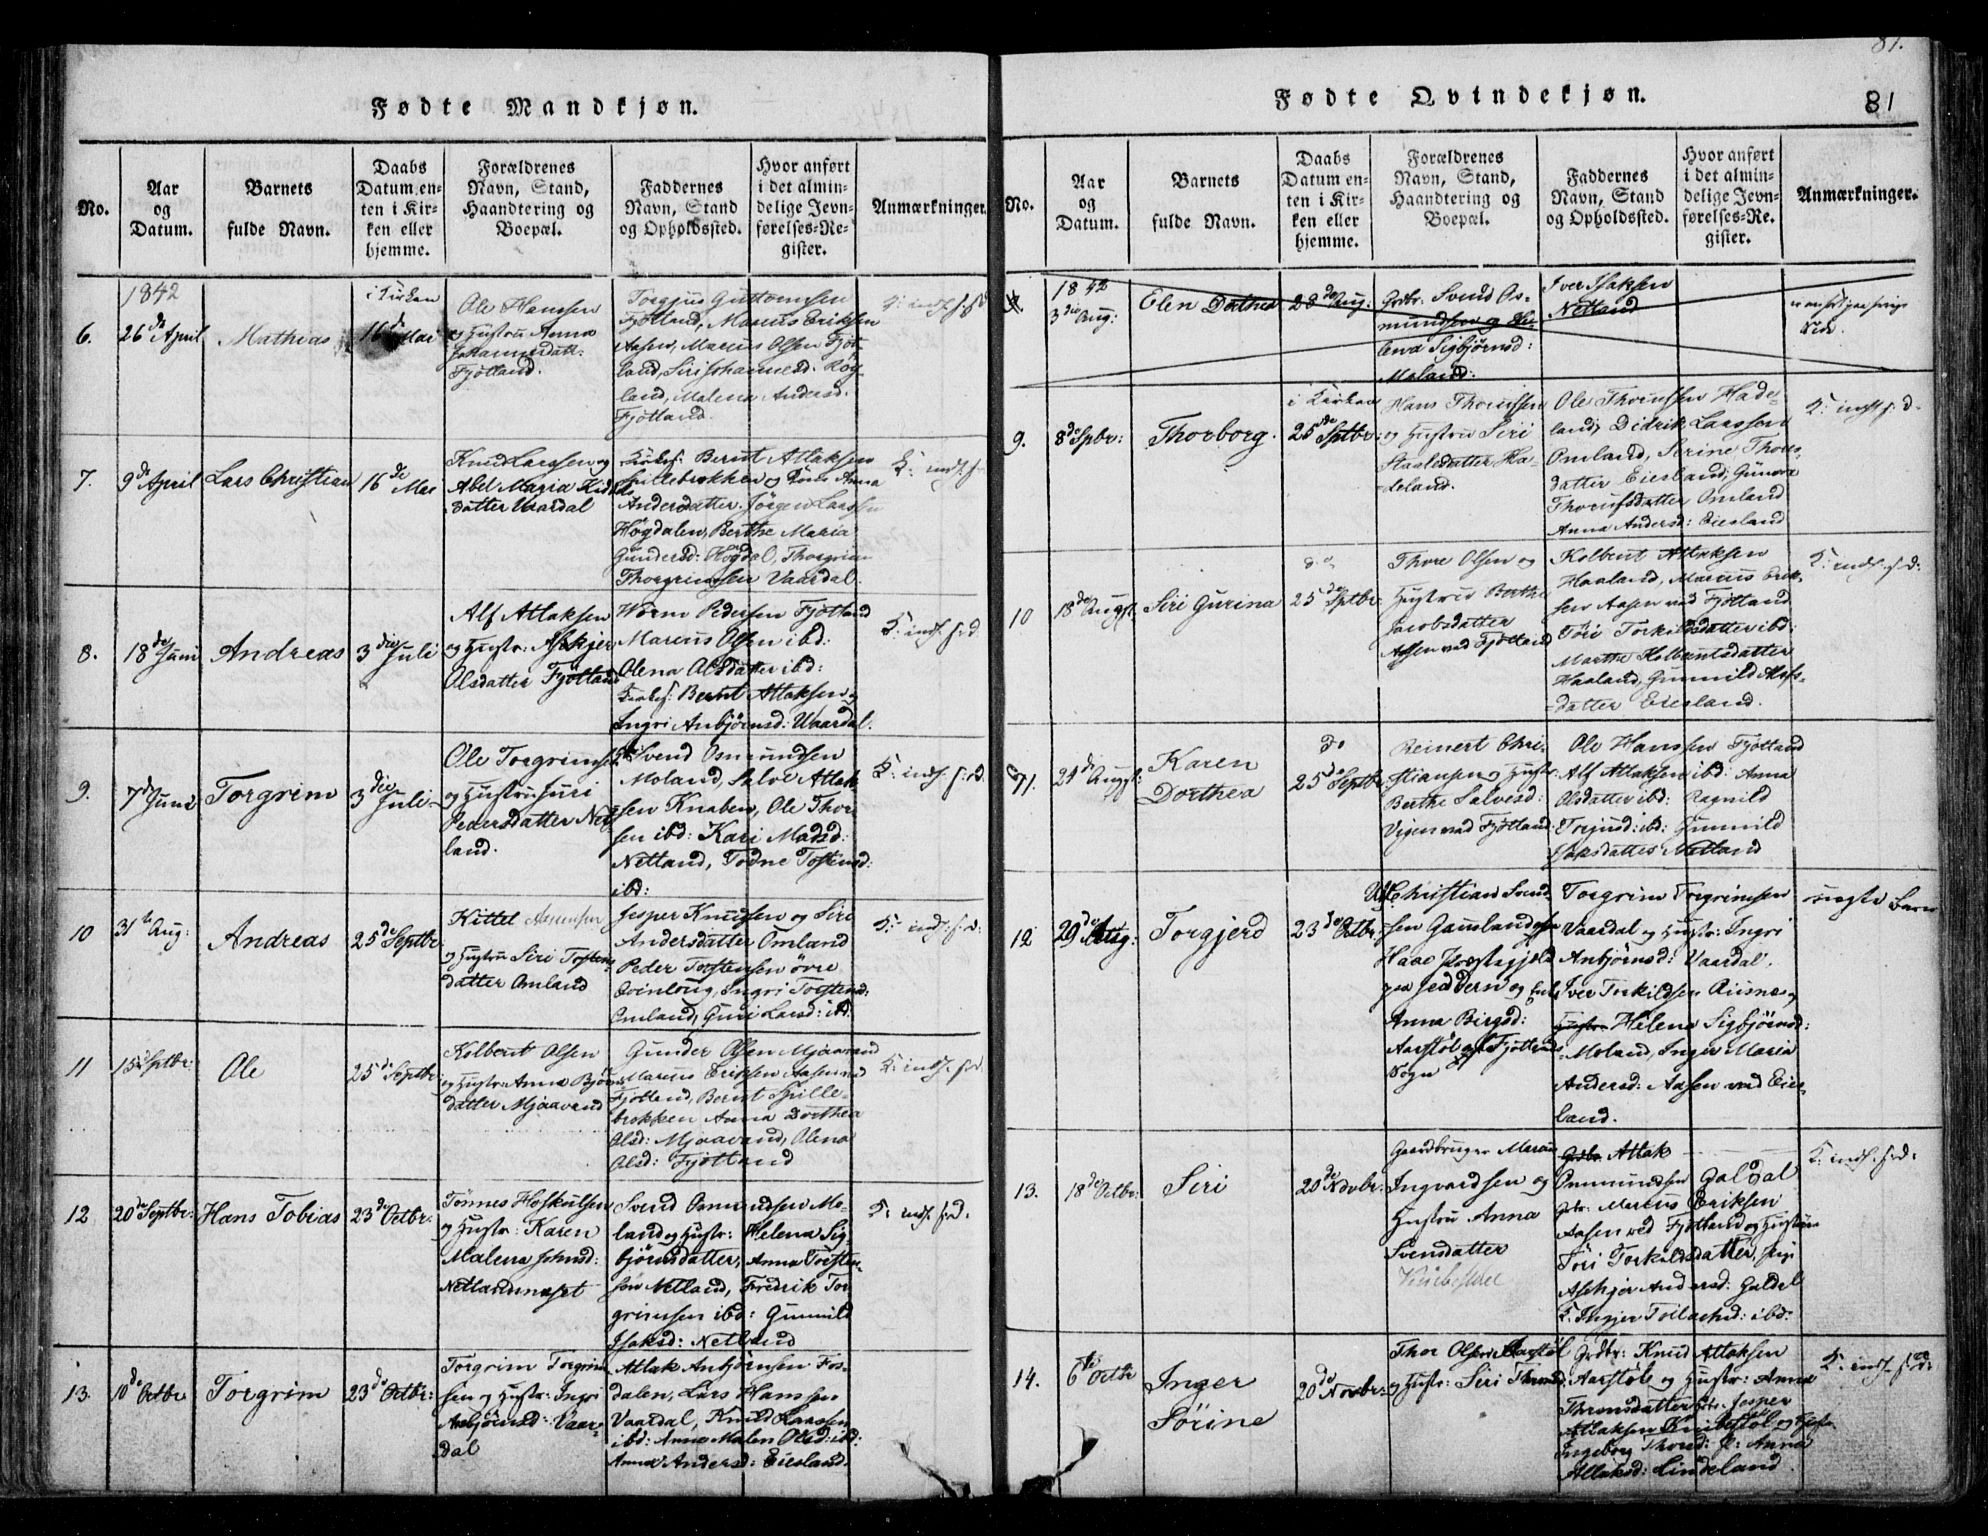 81.
81
Fødte Mandkjøn.
No.
Aar
og
Datum.
Barnets
fulde Navn.
Daabs
Datum en-
ten i Kir-
ken eller
hjemme.
Forældrenes
Navn, Stand,
Haandtering og
Boepæl.
Faddernes
Navn, Stand
og Opholdssted.
Hvor anført
i det almin-
delige Jevn-
førelses-Re-
gister.
Anmærkninger.
6.
1842
26 de April
Mathias
i Kirken
16 de Mai
Ole Hanssen
og Hustru Anna
Johannesdatt:
Fjotland.
Torgjus Guttormsen
Fjotland, Marcus Eriksen
Aasen, Marcus Olsen Fjot-
land, Siri Johannesd. Røg-
land, Malena Andersd.
Fjotland.
7.
9 de April
Lars Christian
16 de Mai
Knud Larssen og
Abel Maria
datter Vaardal
Bernt Atlaksen
Spillebrokken og Anna
Andersdatter. Jørgen Larssen
Høgdalen, Berthe Maria
Gundersd: Høgdal, Thorgrim
Thorgrimsen Vaardal.
8.
18 de Juni
Andreas
3 die Juli
Alf Atlaksen
og Hustr: Askjer
Olsdatter Fjotland
Worm Pedersen Fjotland
Marcus Olsen ibd:
Olena Olsdatter ibd:
Bernt Atlaksen og
Ingri Anbjørnsd: Vaardal.
9.
7 d Juni
Torgrim
3 die Juli
Ole Torgrimsen
og Hustru Guri
Pedersdatter Net-
land.
Svend Osmundsen
Moland, Salve Atlak-
sen Knaben, Ole Thor-
sen ibd: Kari Madsd:
Netland, Todne Tostensd:
ibd:
10
31 te Aug:
Andreas
25 de Septbr:
Kittel Assensen
og Hustru Siri Tostens-
datter Omland
Jesper Knudsen og Siri
Andersdatter Omland
Peder Torstensen øvre
Qvinlaug, Ingri Torstensd:
Omland, Guri Larsd: ibd:
11
15 Septbr:
Ole
25 de Septbr:
Kolbent Olsen
og Hustr: Anna Bjørns
datter Mjaavand
Gunder Olsen Mjaavand
Marcus Eriksen Aasen ved
Fjotland, Bernt Spille-
brokken Anna Dorthea
Olsd: Mjaavand, Olena
Olsd: Fjotland
12
20 de Septbr:
Hans Tobias
23 de Octbr:
Tønnes Høskulsen
og Hustr: Karen
Malena Johnsd:
Netlandsneset
Svend Osmundsen Mo-
land og Hustr: Helena Sig-
bjørnsdatter, Anna Torsten-
sen Netland, Fredrik Tor-
grimsen ibd: Gunnild
Isaksd: Netland
13.
10 de Octbr
Torgrim
23 de Octbr:
Torgrim Torgrim-
sen og Hustr: Ingri
Anbjørnsd: Vaar-
dal
Atlak Anbjørnsen Fos-
dalen, Lars Hanssen
Vaardal, Knud Larssen
ibd: Anna Malen Olsd: ibd:
Anna Andersd: Eiesland.
Fødte Qvindekjøn.
No.
Aar
og
Datum.
Barnets
fulde Navn.
Daabs
Datum en-
ten i Kir-
ken eller
hjemme.
Forældrenes
Navn, Stand,
Haandtering og
Boepæl.
Faddernes
Navn, Stand
og Opholdssted.
Hvor anført
i det almin-
delige Jevn-
førelses-Re-
gister.
Anmærkninger.
1842
3 die Aug:
Elen Dathea
28 de Aug:
Grdbr: Svend Os-
mundsen og He-
lena Sigbjørnsd:
Moland:
Iver Isaksen
Netland
9.
8 de Spbr:
Thorborg.
i Kirken
25 de Sptbr:
Hans Thorussen
og Hustru Siri
Staalesdatter Ha-
deland.
Ole Thorussen Hade-
land, Didrik Larssen
Omland, Serine Thors-
datter Eiesland, Gunvor
Thorufsdatter Omland
Anna Andersd: Eiesland
10
18 de Augst:
Siri Gurina
do,
25 de Sptbr
Thore Olsen og
Hustrue Berthe
Jacobsdatter
Aasen ved Fjotland
Kolbent Atlaksen
Haaland, Marcus Erik-
sen Aasen ved Fjotland
Tøri Torkildsdatter ibd:
Marthe Kolbentsdatter
Haaland, Gunnild Alfs-
datter Eiesland.
11.
24 de Augst:
Karen
Dorthea
do
25 de Septbr
Reinert Chri-
stiansen og Hustr
Berthe Salvesd:
Vigen ved Fjotland
Ole Hanssen Fjotland
Alf Atlaksen ibd: Anna
Olsdatter ibd: Ragnild
Torjusd: ibd: Gunnild
Isaksdatter Netland
12
29 de Aug:
Torgjerd
23 de Octbr:
Christian Svend-
sen Gausland
Haae Præstegjeld
paa Jedderen og
Anna Birgsd:
Aarstøl af Fjotlands
Sogn
Torgrim Torgrimsen
Vaardal og Hustr: Ingri
Anbjørnsd: Vaardal.
Iver Torkildsen Risnes og
Helena Sigbjørnsd:
Moland, Inger Maria
Andersd: Aasen ved Eies-
land.
uægte Barn
13.
18 de Octbr:
Siri
20 de Novbr:
Gaardbruger Marcus
Ingvardsen og
Hustru Anna
Svensdatter
Kvibestøl
Grdbr. Atlak
Ommundsen Galdal
Grbr: Marcus Eriksen
Aasen ved Fjotland og Hustru
Tøri Torkildsdatter,
Askjer Andersd: Galdal
Ingjer Tollachsd: ibd:
14.
6 te Octbr
Inger
Sørine
20 de Novbr:
Thor Olsen Aarstøl
og Hustr: Siri Thronsd
Grdbr: Knud Atlaksen
Aarstøl og Hustr: Anna
Thronsdatter Grbr: Jesper
Atlaksen Knibestøl og Hustr
Ingeborg Thorsd: P: Anna
Atlaksd: Lindeland.